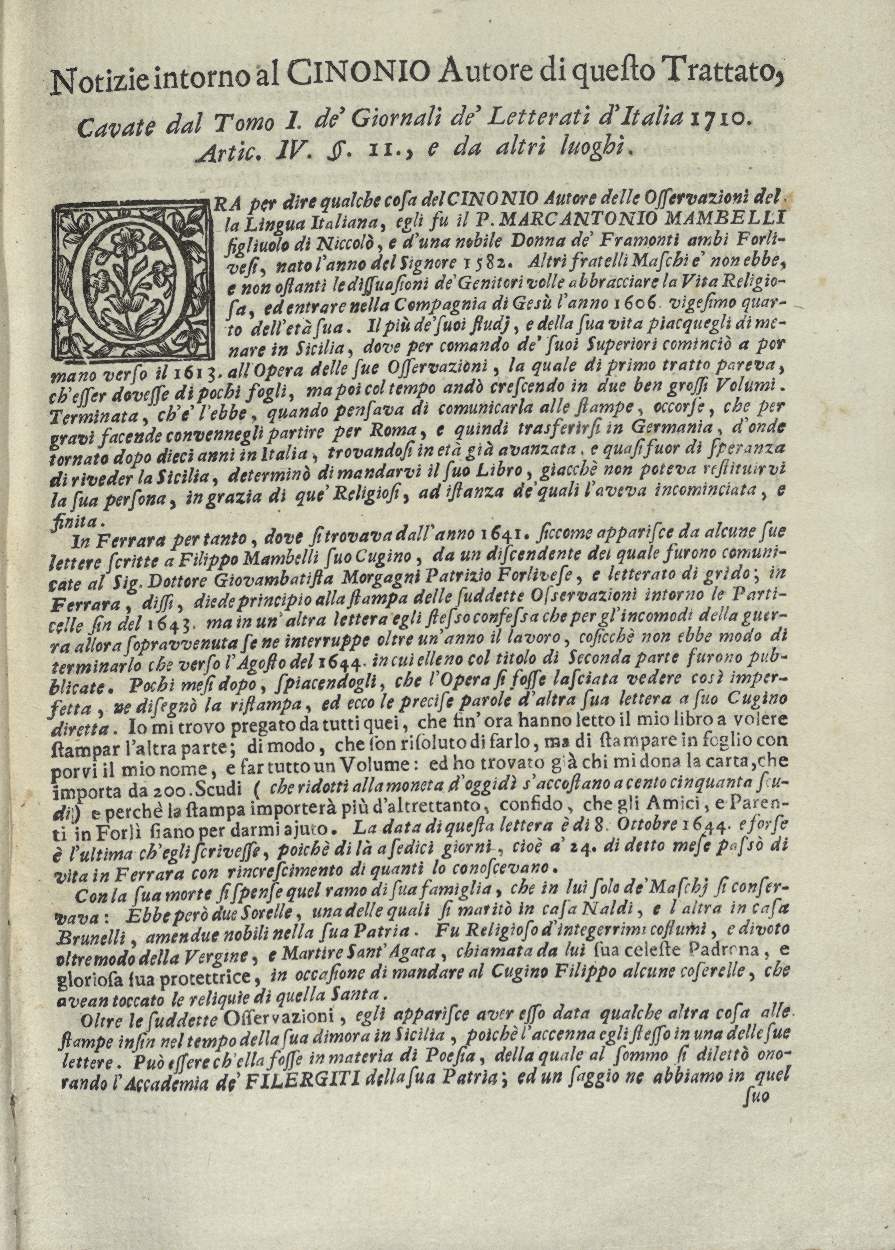 Notizie intorno al CINONIO Autore di queſto Trattato,
Cavate dal Tomo I. de' Giornali de' Letterati d'Italia 1710.
Artic. IV. §. 11., e da altri luoghi.
ORA per dire qualche coſa del CINONIO Autore delle Oſſervazioni del.
la Lingua Italiana, egli fu il P. MARCANTONIO MAMBELLI
figliuolo di Niccolò, e d'una nobile Donna de' Framonti ambi Forli-
veſi, nato l'anno del Signore 1582. Altri fratelli Maſchi e' non ebbe,
e non oſtanti le diſſuaſioni de' Genitori volle abbracciare la Vita Religio-
ſa, ed entrare nella Compagnia di Gesù l'anno 1606. vigeſimo quar-
to dell'età ſua. Il più de' ſuoi ſtudj, e della ſua vita piacquegli di me-
nare in Sicilia, dove per comando de' ſuoi Superiori cominciò a por
mano verſo il 1613. all'Opera delle ſue Oſſervazioni, la quale di primo tratto pareva,
ch'eſſer doveſſe di pochi fogli, ma poi col tempo andò creſcendo in due ben groſſi Volumi.
Terminata, ch'e' l'ebbe, quando penſava di comunicarla alle ſtampe, occorſe, che per
gravi facende convennegli partire per Roma, e quindi trasferirſi in Germania, d'onde
tornato dopo dieci anni in Italia, trovandoſi in età già avanzata, e quaſi fuor di ſperanza
di riveder la Sicilia, determinò di mandarvi il ſuo Libro, giacchè non poteva reſtituirvi
la ſua perſona, in grazia di que' Religioſi, ad iſtanza de' quali l'aveva incominciata, e
finita.
In Ferrara per tanto, dove ſi trovava dall'anno 1641. ſiccome appariſce da alcune ſue
lettere ſcritte a Filippo Mambelli ſuo Cugino, da un diſcendente del quale furono comuni-
cate al Sig. Dottore Giovambatiſta Morgagni Patrizio Forliveſe, e letterato di grido; in
Ferrara, diſſi, diede principio alla ſtampa delle ſuddette Oſservazioni intorno le Parti-
celle fin del 1643. ma in un' altra lettera egli ſteſſo confeſſa che per gl'incomodi della guer-
ra allora ſopravvenuta ſe ne interruppe oltre un'anno il lavoro, coſicchè non ebbe modo di
terminarlo che verſo l'Agoſto del 1644. in cui elleno col titolo di Seconda parte furono pub-
blicate. Pochi meſi dopo, ſpiacendogli, che l'Opera ſi foſſe laſciata vedere così imper-
fetta, ne diſegnò la riſtampa, ed ecco le preciſe parole d'altra ſua lettera a ſuo Cugino
diretta. Io mi trovo pregato da tutti quei, che fin' ora hanno letto il mio libro a volere
ſtampar l'altra parte; di modo, che ſon riſoluto di farlo, ma di ſtampare in foglio con
porvi il mio nome, e far tutto un Volume: ed ho trovato già chi mi dona la carta, che
importa da 200. Scudi ( che ridotti alla moneta d'oggidì s'accoſtano a cento cinquanta ſcu-
di) e perchè la ſtampa importerà più d'altrettanto, confido, che gli Amici, e Paren-
ti in Forlì ſiano per darmi ajuto. La data di queſta lettera è di 8. Ottobre 1644. e forſe
è l'ultima ch'egli ſcriveſſe, poichè di là a ſedici giorni, cioè a' 24. di detto meſe paſsò di
vita in Ferrara con rincreſcimento di quanti lo conoſcevano.
Con la ſua morte ſi ſpenſe quel ramo di ſua famiglia, che in lui ſolo de' Maſchj ſi conſer-
vava: Ebbe però due Sorelle, una delle quali ſi maritò in caſa Naldi, e l altra in caſa
Brunelli, amendue nobili nella ſua Patria. Fu Religioſo d'integerrimi coſtumi, e divoto
oltremodo della Vergine, e Martire Sant' Agata, chiamata da lui ſua celeſte Padrona, e
glorioſa ſua protettrice, in occaſione di mandare al Cugino Filippo alcune coſerelle, che
avean toccato le reliquie di quella Santa.
Oltre le ſuddette Oſſervazioni, egli appariſce aver eſſo data qualche altra coſa alle
ſtampe inſin nel tempo della ſua dimora in Sicilia, poichè l'accenna egli ſteſſo in una delle ſue
lettere. Può eſſere ch'ella foſſe in materia di Poeſia, della quale al ſommo ſi dilettò ono-
rando l'Accademia de' FILERGITI della ſua Patria; ed un ſaggio ne abbiamo in quel
ſuo